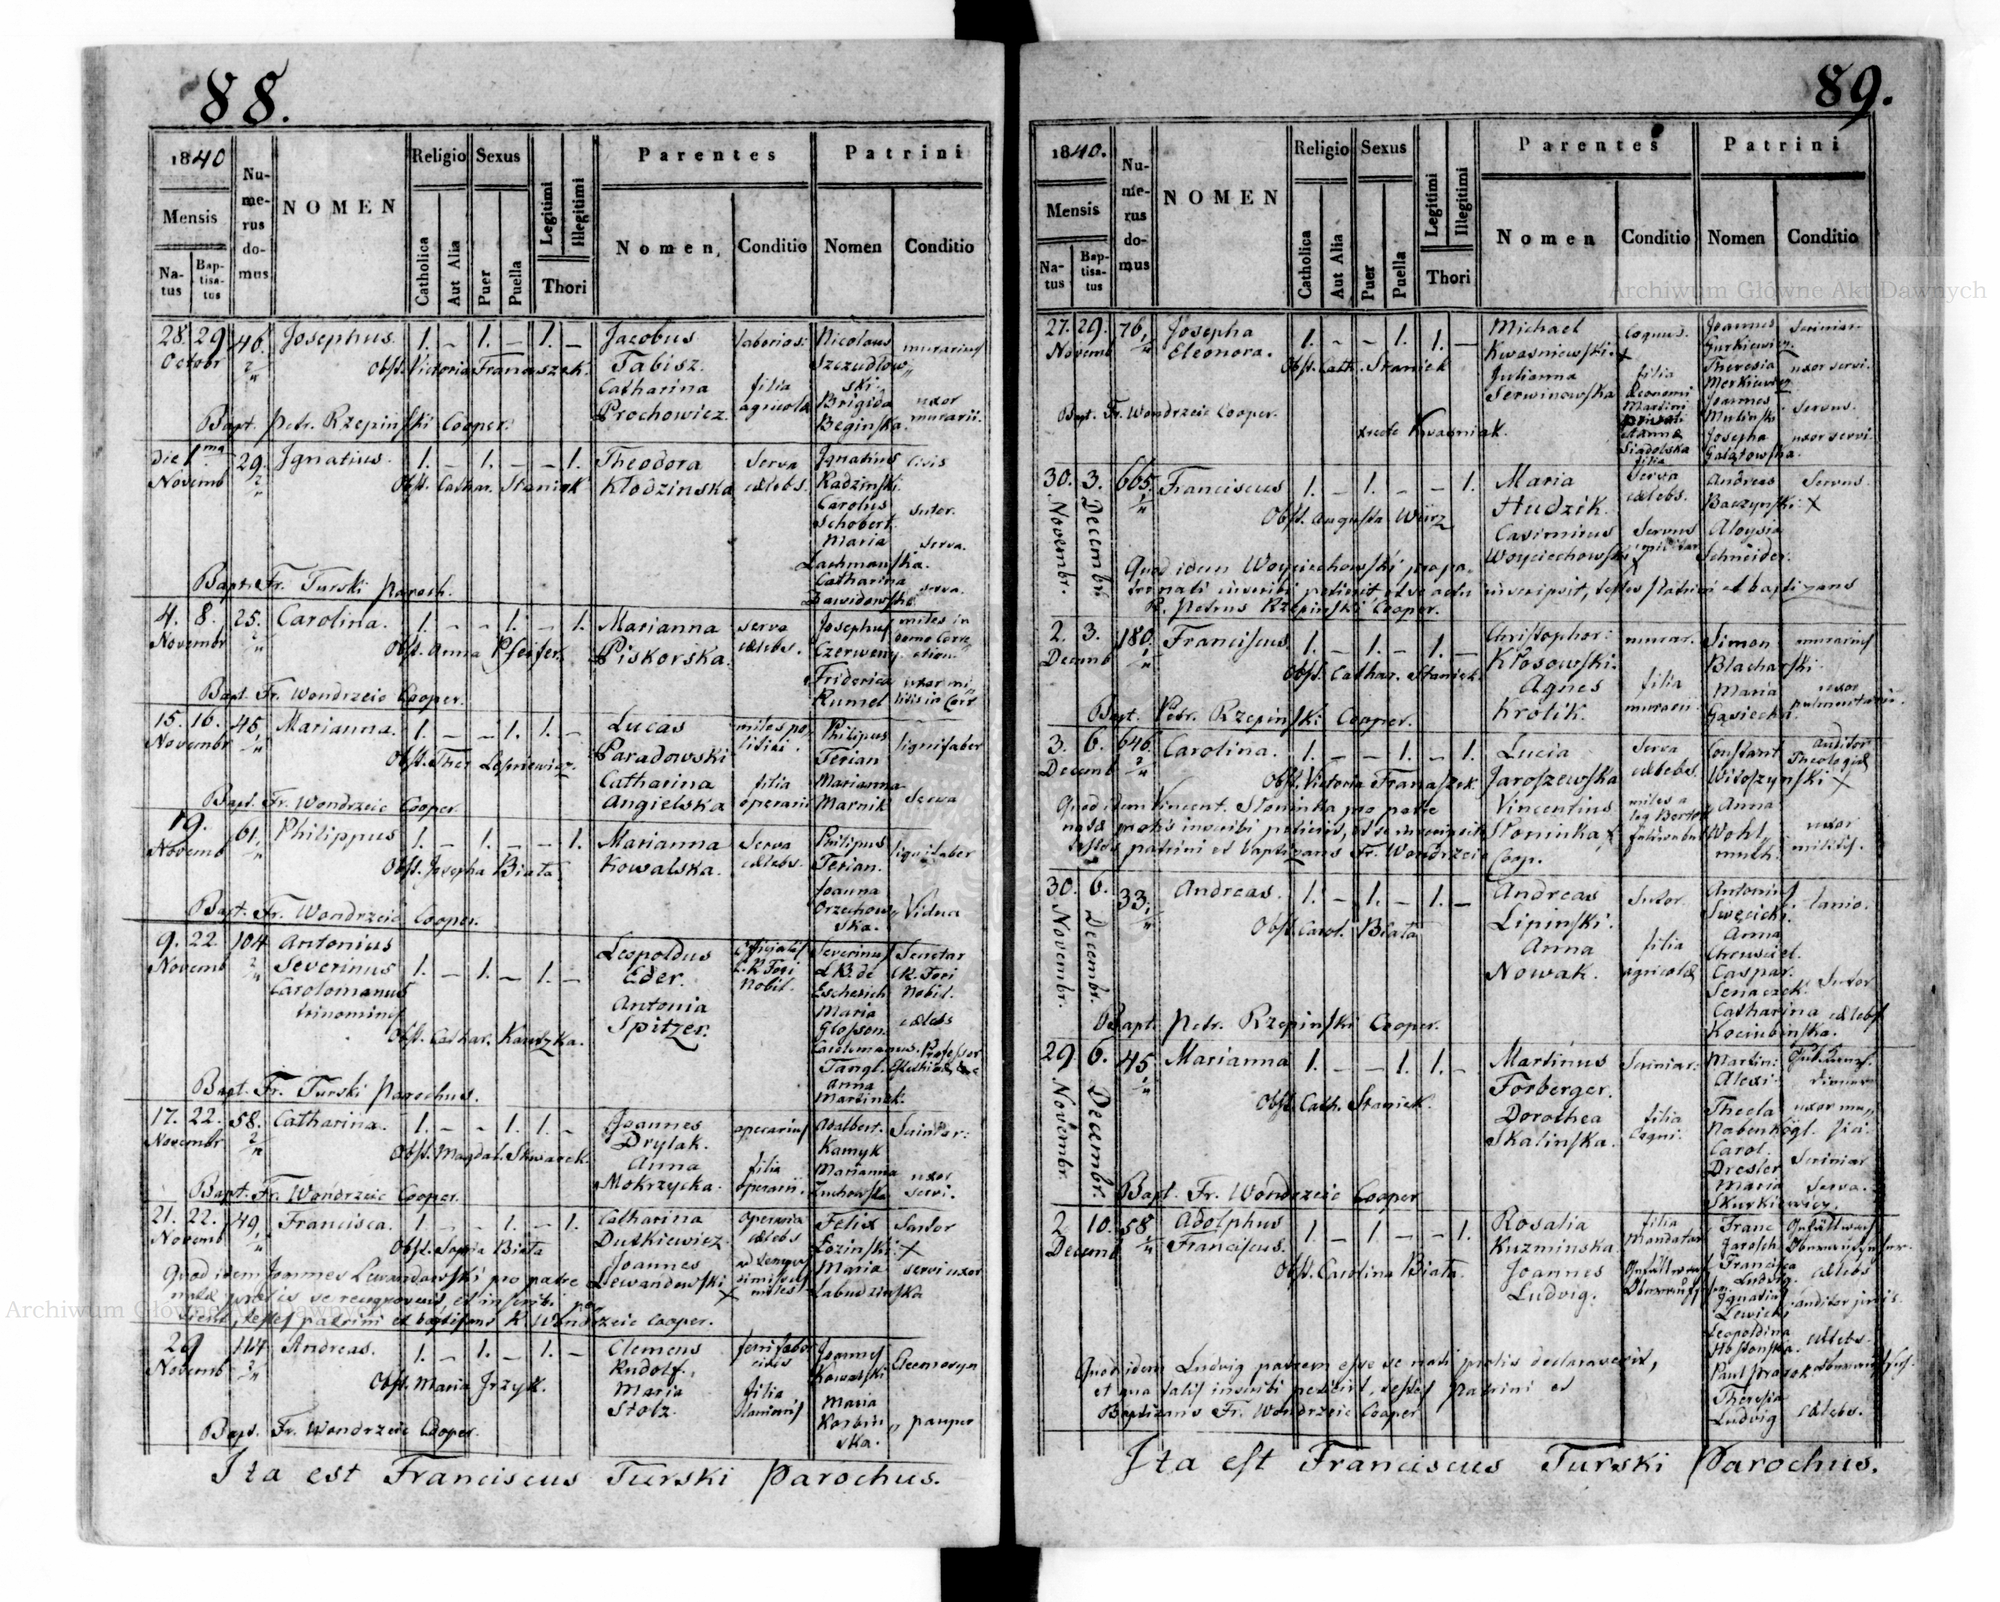 88.
1840
Mensis
Na-
tus
Bap-
tisa-
tus
Nu-
me-
rus
do-
mus
NOMEN
Religio
Catholica
Aut Alia
Sexus
Puer
Puella
Legitimi
Illegitimi
Thori
Parentes
Nomen,
Conditio
Patrini
Nomen
Conditio
28. 29 46. Josephus. 1. – 1. – 1. – Jacobus laborios: Nicolaus murarius
Octobr Obst. Victoria Franaszek. Tabisz. Szczudłow„
ski.
Catharina filia Brigida uxor
Prochowicz. agricolæ Beginska. murarii.
Bapt. Petr. Rzepinski Cooper.
die 1ma 29. Ignatius. 1. – 1. – – 1. Theodora serva Ignatius civis
Novemb Obst. Cathar. Staniek Kłodzinska cælebs. Radzinski.
Carolus sutor.
Schobert.
Maria serva.
Lachmanska.
Catharina
Dawidowska serva.
Bapt. Fr. Turski Paroch.
4. 8. 25. Carolina. 1. – – 1. – 1. Marianna serva Josephus miles in
Novembr Obst. Anna Pfeifer. Piskorska. cælebs. Czerweny domo Corre„
Friderica uxor mi„
Rumel litis in Corr
Bapt. Fr. Wondrzeic Cooper.
15. 16. 45. Marianna. 1. – – 1. 1. – Lucas miles po Philipus lignifaber
Novembr Obst. Ther Lesniewicz. Paradowski litiæi. Terian
Catharina filia Marianna
Angielska operarii Marnik serva
Bapt. Fr. Wondrzeic Cooper.
19. 61. Philippus 1. – 1. – – 1. Marianna serva Philipus lignifaber
Novemb Obst. Josepha Biała Kowalska. cælebs. Terian.
Joanna
Orzechow„ Vidua
ska.
Bapt. Fr. Wondrzeic Cooper.
9. 22. 104 Antonius Leopoldus Officialis Severinus Secretar
Novemb Severinus 1. – 1. – 1. – Eder. C. R. Fori L. B. de C. R. Fori
Carolomanus Nobil. Escherich Nobil.
trinominis Antonia Maria
Spitzer. Glosson. cælebs
Obst. Cathar. Kautzka. Carolomanus Professor
Tangl.
Anna
Marcinek.
Bapt. Fr. Turski Parochus.
17. 22. 58. Catharina. 1. – – 1. 1. – Joannes operarius Adalbert.
Novembr Obst. Magdal. Skwarek. Drylak. Kamyk
Anna filia Marianna uxor
Mokrzycka. operarii. Zuchowska servi.
Bapt. Fr. Wondrzeic Cooper.
21. 22. 49. Francisca. 1. – – 1. – 1. Catharina operaria Felix Sutor
Novemb Obst. Sophia Biała Dutkiewicz cælebs Łozinski. x
Quod idem Joannes Lewandowski pro patre Joannes Maria servi uxor
natæ prolis se recognoverit et inscribi pe„ Lewandowski x miles Łabudzinska
tierit, testes patrini et baptisans Fr. Wondrzeic Cooper.
29 114 Andreas. 1. – 1. – 1. – Clemens Joannes Eleemosyn
Novemb Obst. Maria Jrzyk. Rudolf. civis Kowalski
Maria filia Maria
Stolz. Korbin „ pauper
ska.
Bapt. Fr. Wondrzeic Cooper.
Ita est Franciscus Turski Parochus.
89.
1840.
Mensis
Na-
tus
Bap-
tisa-
tus
Nu-
me-
rus
do-
mus
NOMEN
Religio
Catholica
Aut Alia
Sexus
Puer
Puella
Legitimi
Illegitimi
Thori
Parentes
Nomen
Conditio
Patrini
Nomen
Conditio
27. 29. 76. Josepha 1. – – 1. 1. – Michael coquus. Joannes
Novemb Eleonora. Kwasniewski. x Gurkiewicz.
Obst. Cath. Staniek Julianna filia Theresia uxor servi.
Serwinowska œconomi Merkiewicz
Martini Joannes
Bapt. Fr. Wondrzeic Cooper. privati Mulinski servus.
x recte Kwasniak. Annæ Josepha uxor servi.
Siadolska Galatowska.
filia
30. 3. 665. Franciscus 1. – 1. – – 1. Maria Serva Andreas Servus
Novembr. Decembr. Obst. Augusta Würz Hudzik. cælebs. Baczynski. x
Casimirus Servus Aloysia
Woyciechowski x Schneider.
Quod idem Woyciechowski pro pa„
tre nati inscribi petierit et se actu inscripsit, testes Patrini et baptizans
R. Petrus Rzepinski Cooper.
2. 3. 180. Franciscus 1. – 1. – 1. – Christophor: murar. Simon murarius
Decemb Obst. Cathar. Staniek. Kłosowski. Blacharski.
Agnes filia Maria uxor
Krolik. murarii. Gasiecka.
Bapt. Petr. Rzepinski Cooper.
3. 6. 646. Carolina. 1. – – 1. – 1. Lucia Serva Constant auditor
Decemb Obst. Victoria Franaszek. Jaroszewska cælebs. Witoszynski x Theologiæ
Quod idem Vincent. Słominka pro patre Vincentius miles a Anna
natæ prolis inscribi petierit, et se inscripsit Słominka x leg Bertol Wohl„ uxor
testes patrini et baptizans Fr. Wondrzeic Coop. muth. militis.
30. 6. 33. Andreas. 1. – 1. – 1. – Andreas Sutor. Antonius lanio.
Novembr. Decembr. Obst. Carol. Biała Lipinski. Swięcicki.
Anna filia Anna
Nowak. agricolæ Chrusciel.
Caspar Sutor
Senaczek.
Catharina cælebs
Kociubinska.
Bapt. Petr. Rzepinski Cooper.
29. 6. 45. Marianna 1. – – 1. 1. – Martinus Scriniar: Martin:
Novembr. Decembr. Obst. Cath. Staniek. Forberger. Alexi.
Dorothea filia Thecla
Skalinska. Nabenkögl.
Carol. Scriniar
Dresler
Maria serva.
Skurkiewicz.
Bapt. Fr. Wondrzeic Cooper
2 10. 58 Adolphus 1. – 1. – – 1. Rosalia filia Franc
Decemb Franciscus. Kuzminska Mandatar Jarosch
Obst. Carolina Biała. Joannes Francisca cælebs
Ludvig. Ludvig.
Ignatius auditor juris.
Lewick,
Leopoldina cælebs.
Hossonska.
Quod idem Ludvig patrem esse se nati prolis declaraverit, Paul Prazok
et qua talis inscribi petierit, testes Patrini et Theresia
Baptizans Fr. Wondrzeic Cooper Ludvig cælebs.
Ita est Franciscus Turski Parochus.
Archiwum Główne Akt Dawnych
Archiwum Główne Akt Dawnych